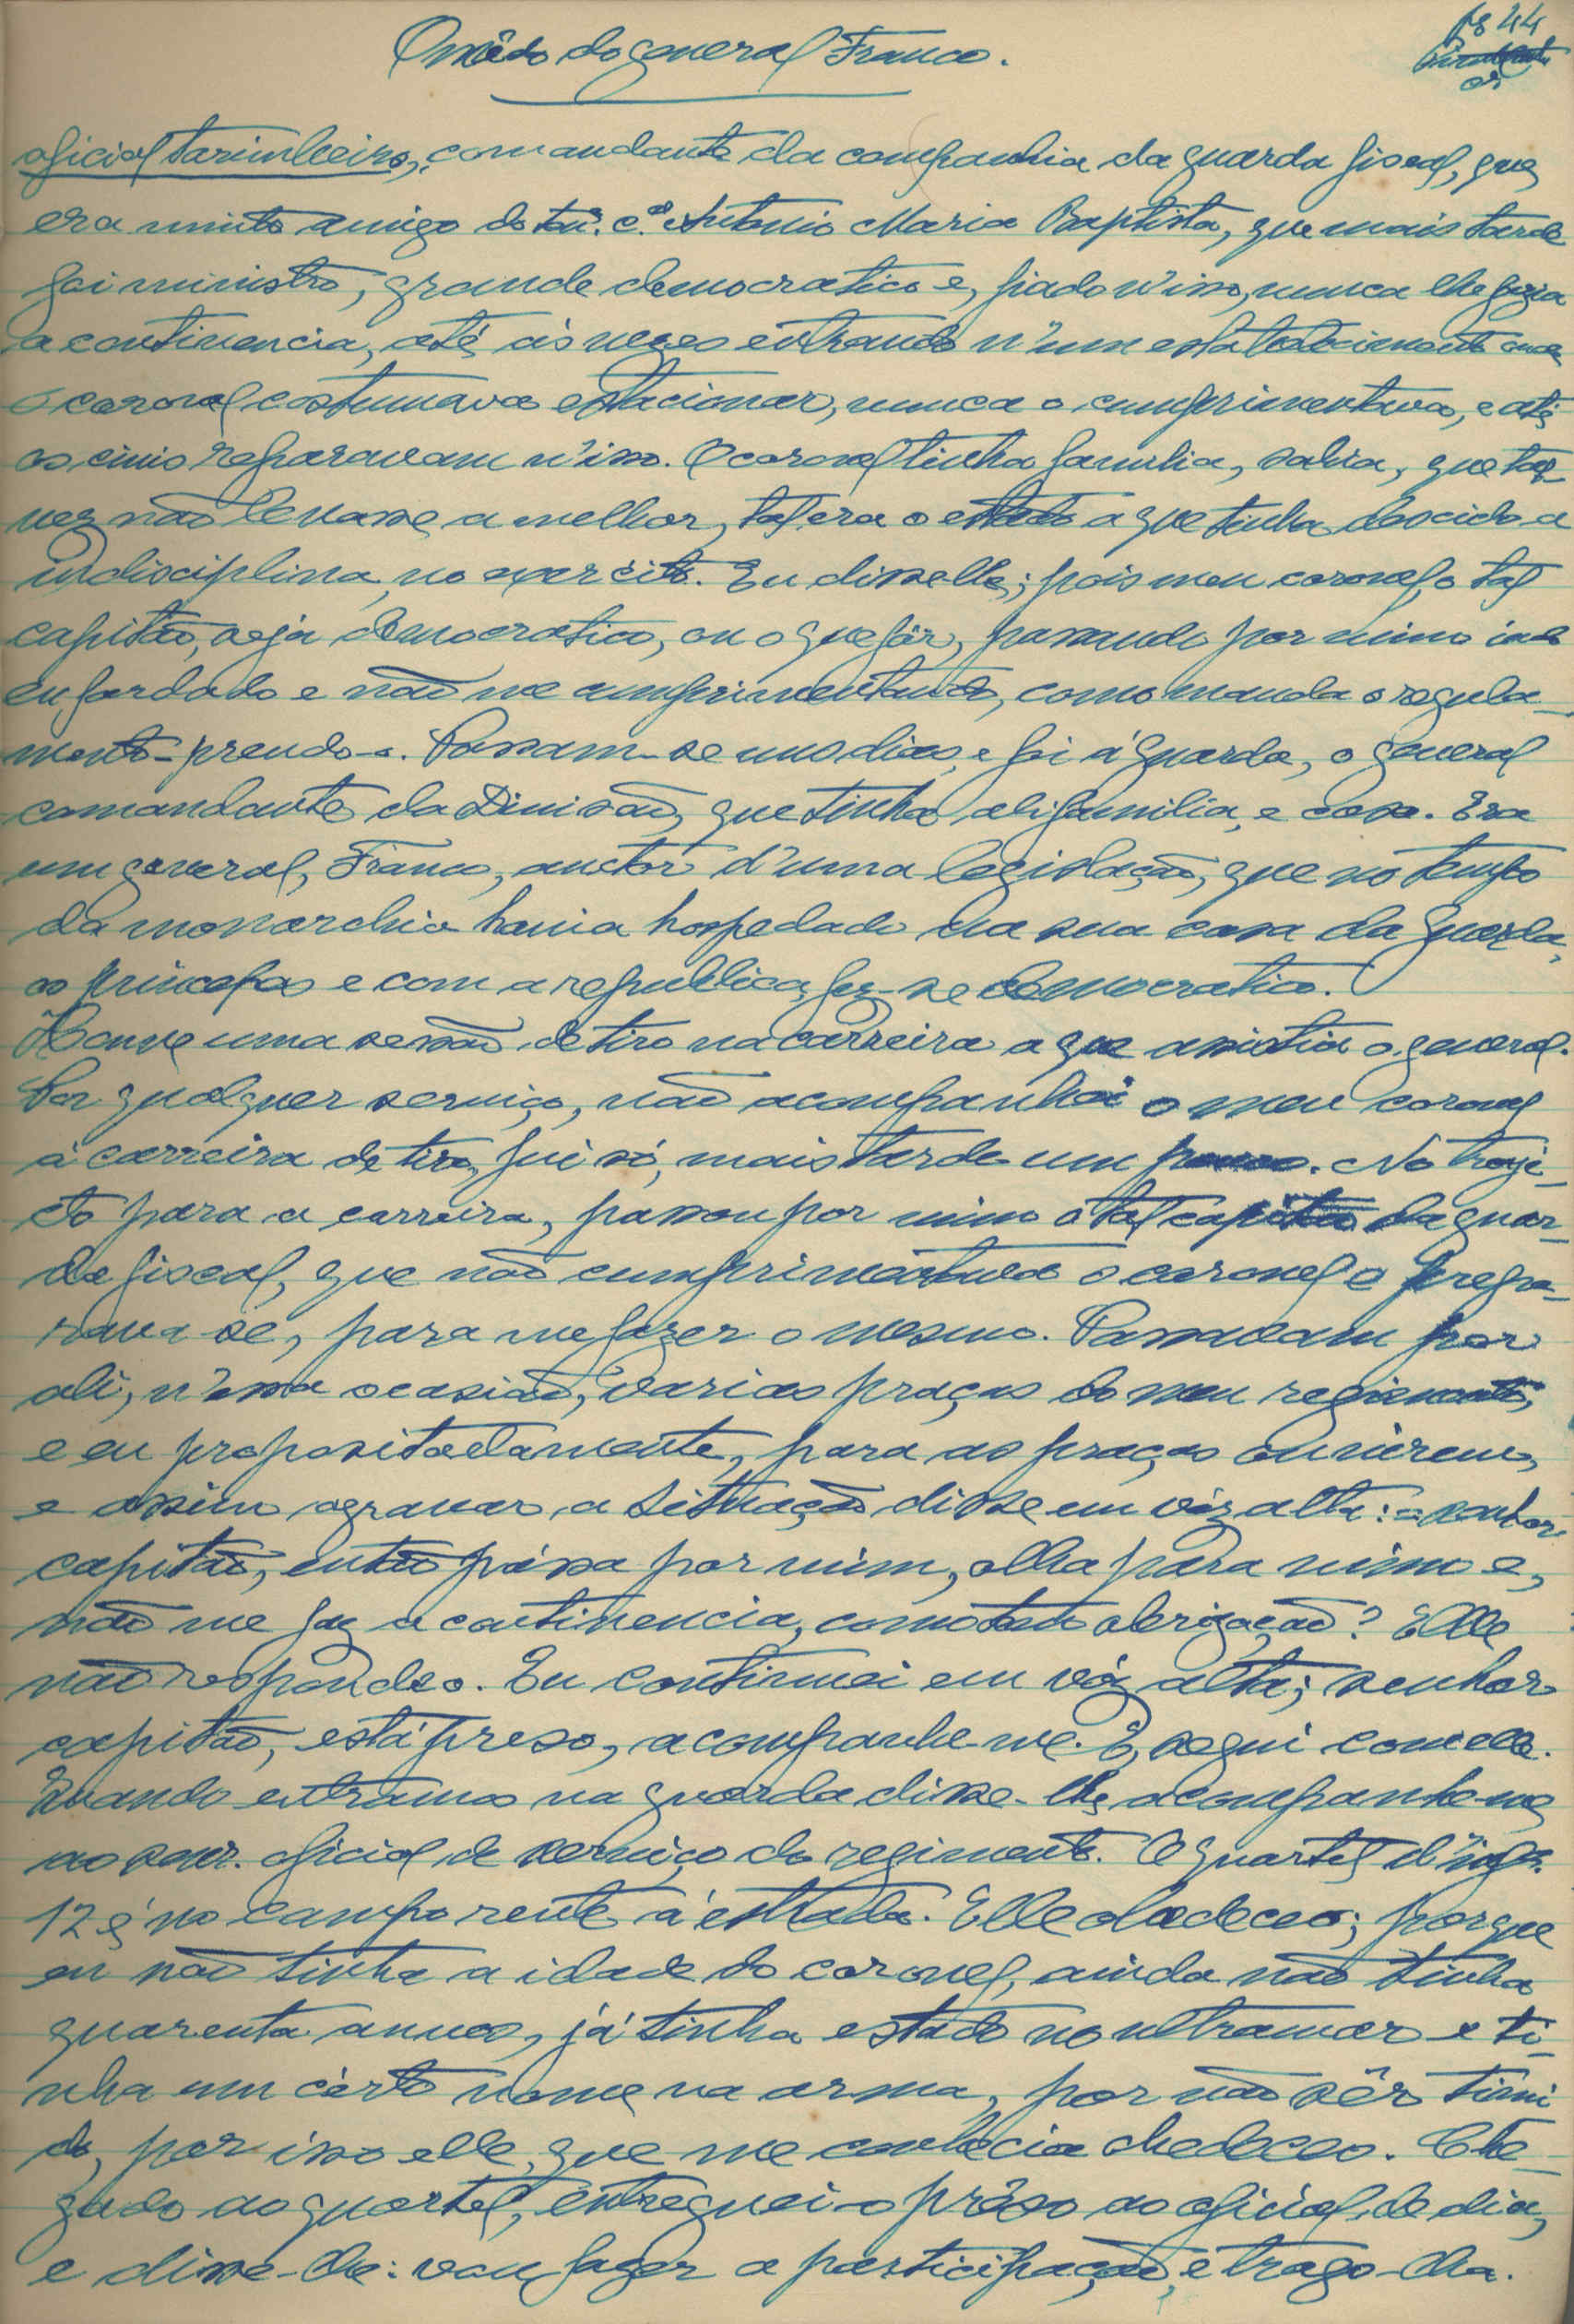 O mêdo do general Franco.
fs 44
oficial tarimbeiro, comandante da companhia da guarda fiscal, que
era muito amigo do ten. c.el Antonio Maria Baptista, que mais tarde
foi ministro, grande democratico e, fiado n'isso, nunca lhe fazia
a continencia, até ás vezes entrando n'um estabelecimento onde
o coronel costumava estacionar, nunca o cumprimentava, e até
os civis reparavam n'isso. O coronel tinha familia, sabia, que tal-
vez não levasse a melhor, tal era o estado a que tinha descido a
indisciplina, no exercito. Eu disse-lhe; pois meu coronel, o tal
capitão, seja democratico, ou o que fôr, passando por mim
enfardado e não me cumprimentando, como manda o regula-
mento - prendo-o. Passam-se uns dias, e foi á Guarda, o general
comandante da Divisão, que tinha ali familia, e casa. Era
um general, Franco, auctor d'uma legislação, que no tempo
da monarchia havia hospedado na sua casa da Guarda,
os principes e com a republica, fez-se democratico.
Houve uma sessão de tiro na carreira a que assistia o general.
Por qualquer serviço, não acompanhei o meu coronel
á carreira de tiro, fui só, mais tarde um pouco. No traje-
cto para a carreira, passou por mim o tal capitão da guar-
da fiscal, que não cumprimentava o coronel e prepa-
rava-se, para me fazer o mesmo. Passavam por
ali, n'essa ocasião, varias praças do meu regimento,
e eu propositadamente, para as praças ouvirem,
e assim agravar a situação disse em vóz alta: o senhor
capitão, então pássa por mim, olha para mim e,
não me faz a continencia, como tem obrigação? Elle
não respondeo. Eu continuei em vóz alta; senhor
capitão, está preso, acompanhe-me. E, segui com elle.
Quando entramos na guarda disse-lhe, acompanhe-me
ao snr. oficial de serviço do regimento. O quartel d'inf.
12 é no campo rente á estrada. Elle obedeceo; porque
eu não tinha a idade do coronel, ainda não tinha
quarenta annos, já tinha estado no ultramar e ti-
nha um cérto nome na arma, por não sêr timi
do, por isso elle, que me conhecia obedeceo. Che-
gado ao quartel, entreguei-o prêso ao oficial de dia,
e disse-lhe: vou fazer a participação, e trago-lha.